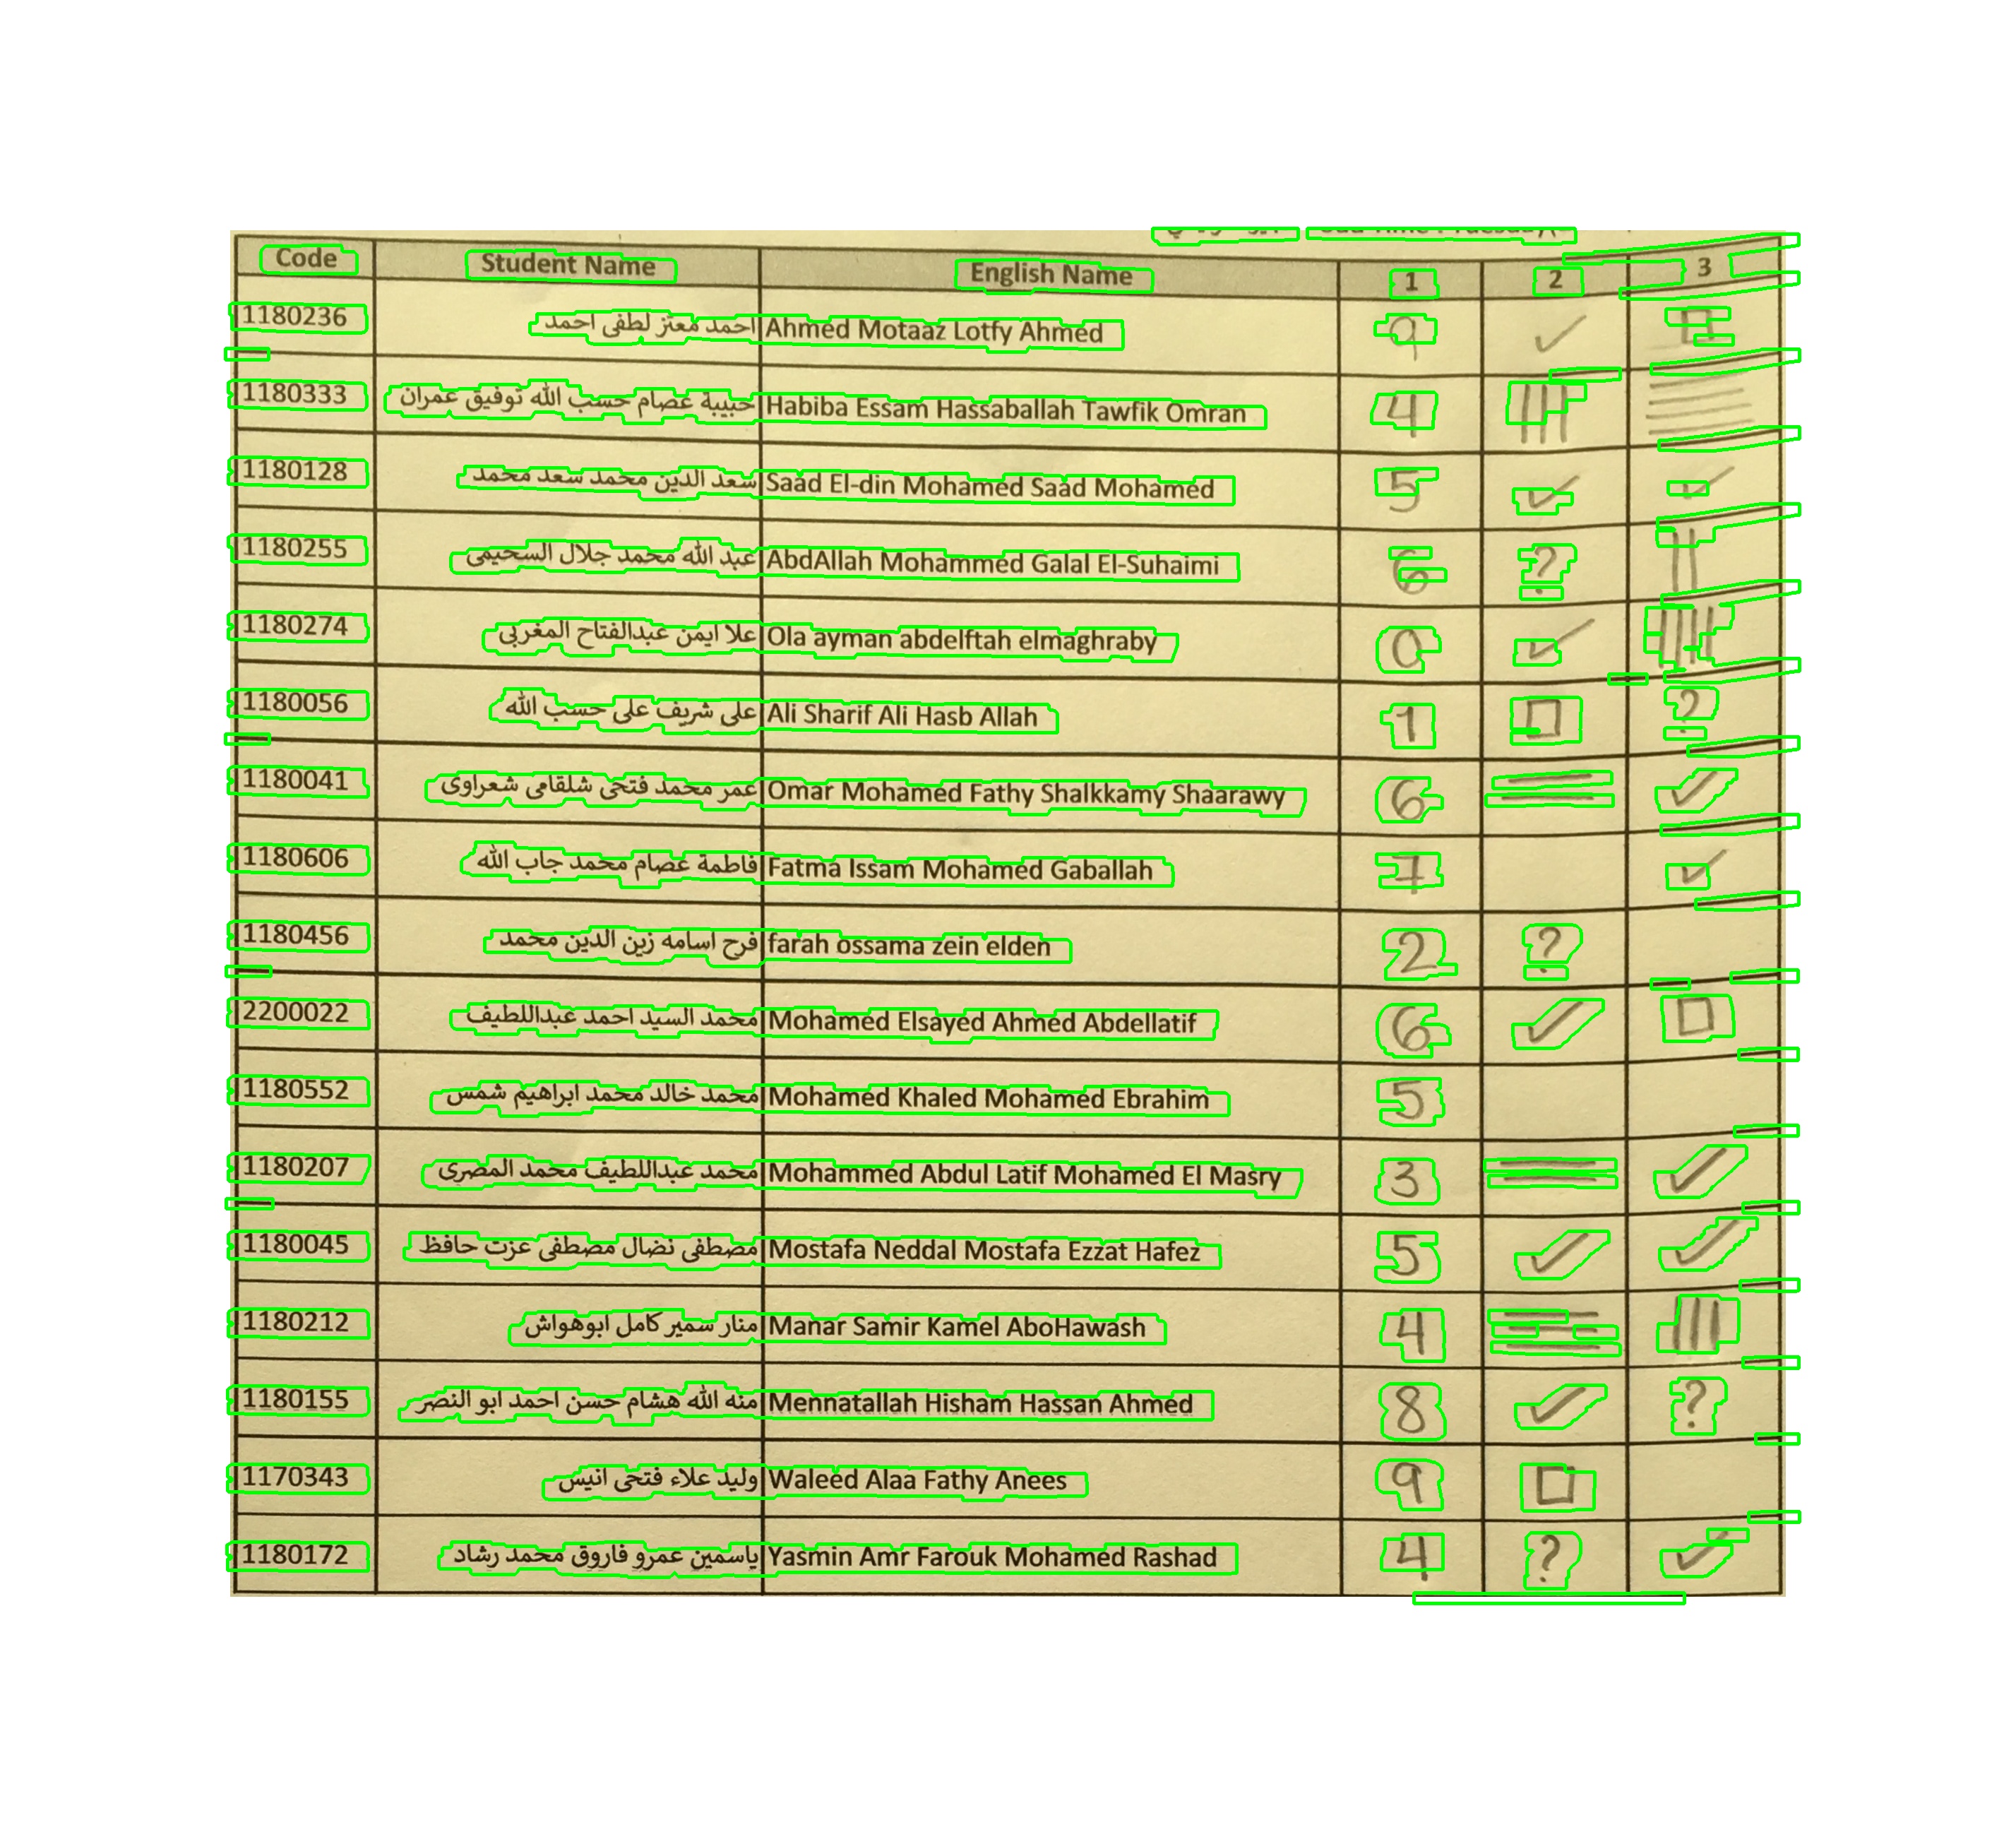 Code Student Name English Name 1 2 3
1180236 احمد معتز لطفى احمد Ahmed Motaaz Lotfy Ahmed 9 ✓ □
1180333 حبيبة عصام حسب الله توفيق عمران Habiba Essam Hassaballah Tawfik Omran 4
1180128 سعد الدين محمد سعد محمد Saad El-din Mohamed Saad Mohamed 5 ✓ ✓
1180255 عبد الله محمد جلال السحيمى AbdAllah Mohammed Galal El-Suhaimi 6 ?
1180274 علا ايمن عبدالفتاح المغربى Ola ayman abdelftah elmaghraby 0 ✓
1180056 على شريف على حسب الله Ali Sharif Ali Hasb Allah 1 □ ?
1180041 عمر محمد فتحى شلقامى شعراوى Omar Mohamed Fathy Shalkkamy Shaarawy 6 ✓
1180606 فاطمة عصام محمد جاب الله Fatma Issam Mohamed Gaballah 7 ✓
1180456 فرح اسامه زين الدين محمد farah ossama zein elden 2 ?
2200022 محمد السيد احمد عبداللطيف Mohamed Elsayed Ahmed Abdellatif 6 ✓ □
1180552 محمد خالد محمد ابراهيم شمس Mohamed Khaled Mohamed Ebrahim 5
1180207 محمد عبداللطيف محمد المصرى Mohammed Abdul Latif Mohamed El Masry 3 ✓
1180045 مصطفى نضال مصطفى عزت حافظ Mostafa Neddal Mostafa Ezzat Hafez 5 ✓ ✓
1180212 منار سمير كامل ابوهواش Manar Samir Kamel AboHawash 4
1180155 منه الله هشام حسن احمد ابو النصر Mennatallah Hisham Hassan Ahmed 8 ✓ ?
1170343 وليد علاء فتحى انيس Waleed Alaa Fathy Anees 9 □
1180172 ياسمين عمرو فاروق محمد رشاد Yasmin Amr Farouk Mohamed Rashad 4 ? ✓